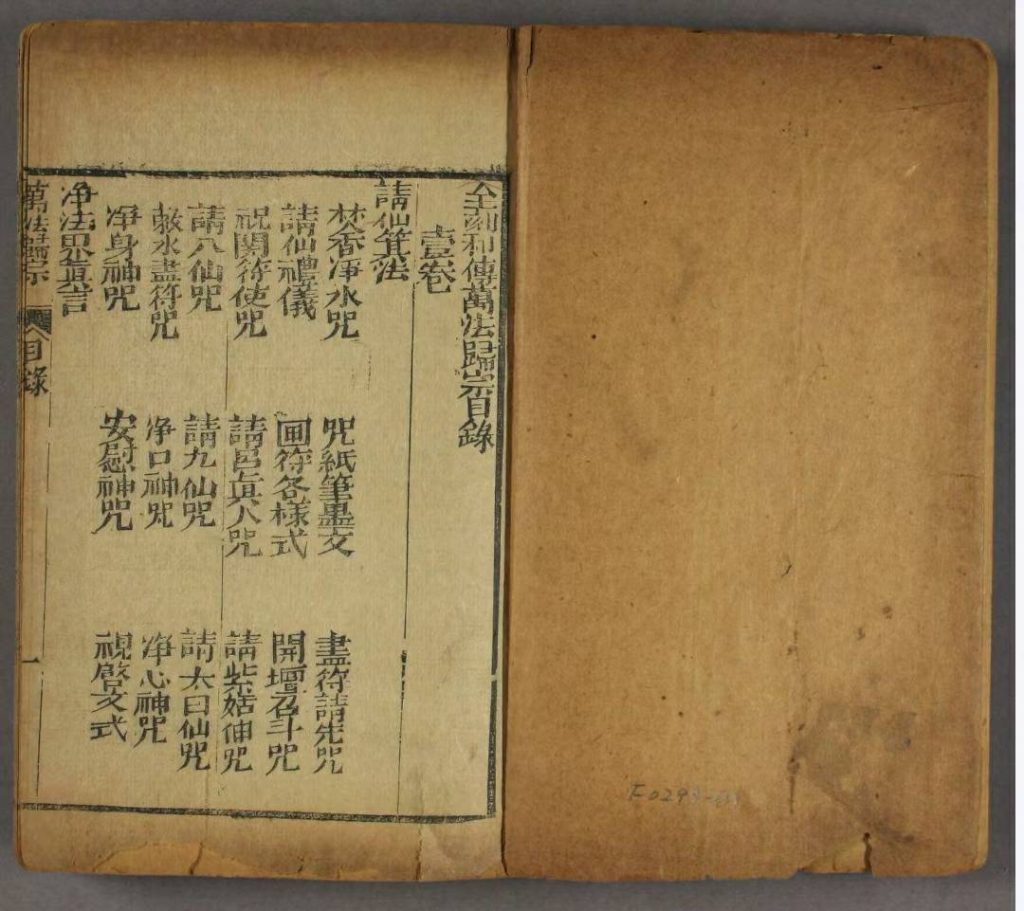 全刻和傳萬法歸宗目錄
壹卷
請仙箕法
焚香净水咒 咒紙筆墨文 盡符請先咒
請仙禮儀 画符各樣式 開壇召斗咒
祝關符使咒 請呂眞人咒 請紫姑神咒
請八仙咒 請九仙咒 請太白仙咒
敕水盡符咒 净口神咒 净心神咒
净身神咒 安慰神咒 視啓文式
净法界眞言
萬法歸宗 目錄 一